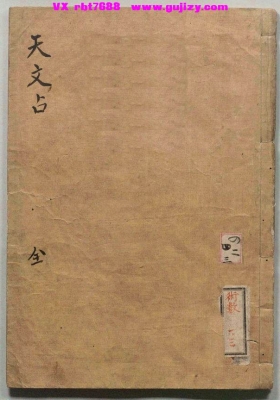 VX rbt7688 www.gujizy.com
天文占
全
四三
術數